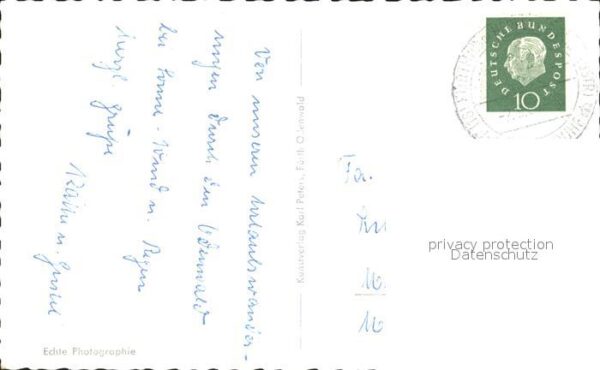 Von unseren Urlaubswander-
ungen durch den Odenwald
bei Sonne - Wind u. Regen
herzl. Grüße
Käthe u.
Echte Photographie
Kunstverlag Karl Peters, Fürth Odenwald
DEUTSCHE BUNDESPOST
10
Fa.
privacy protection
Datenschutz